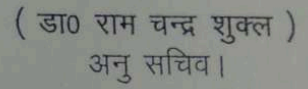 ( डा0 राम चन्द्र शुक्ल )
अनु सचिव।